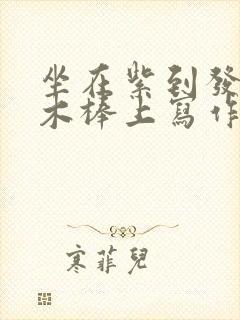 坐在紫到發
木棒上寫作
寒菲兒